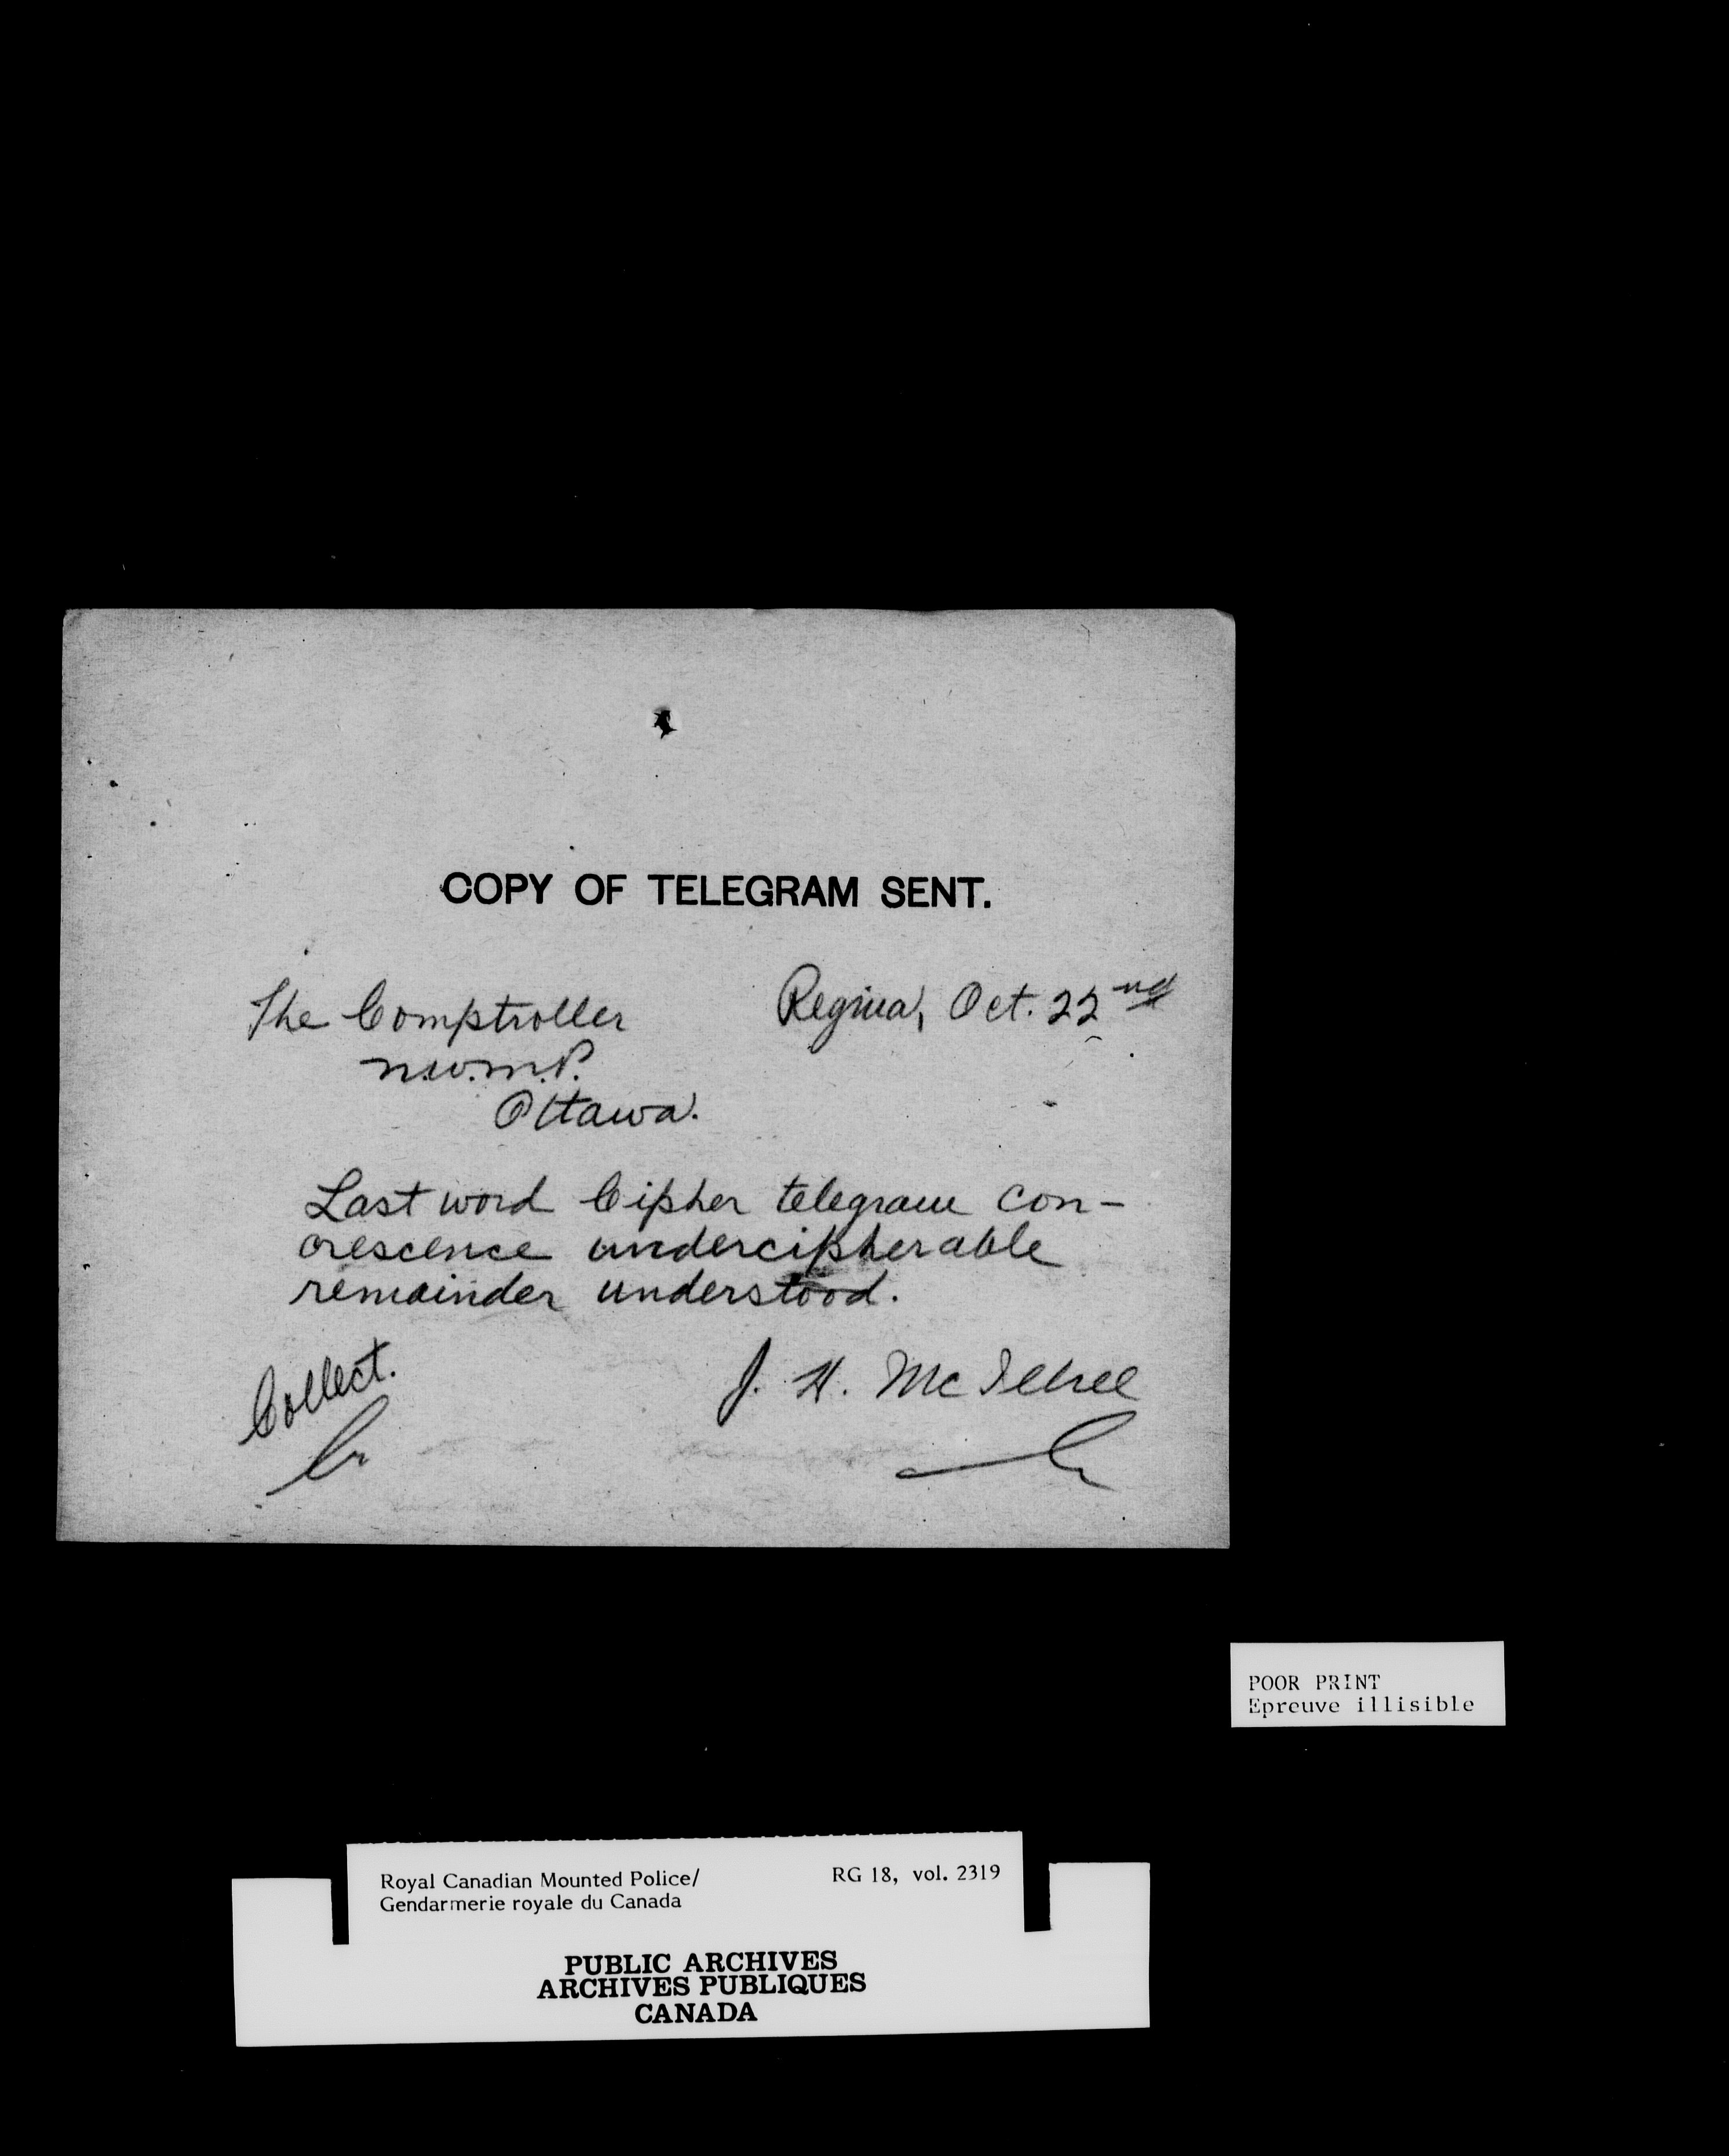 COPY OF TELEGRAM SENT.
The Comptroller Regina, Oct. 22nd
N.W.M.P.
Ottawa.
Last word Cipher telegram con-
crescence undercipherable
remainder understood.
Collect.
J. H. McIllree
POOR PRINT
Epreuve illisible
Royal Canadian Mounted Police/ RG 18, vol. 2319
Gendarmerie royale du Canada
PUBLIC ARCHIVES
ARCHIVES PUBLIQUES
CANADA